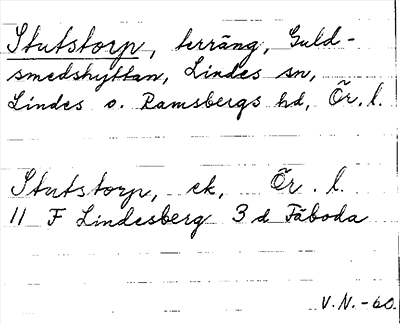 Stutstorp, terräng, Guld-
smedshyttan, Lindes sn,
Lindes o. Ramsbergs hd, Ör. l.
Stutstorp, ek, Ör. l.
11 F Lindesberg 3 d Fäboda
V.N.-60.